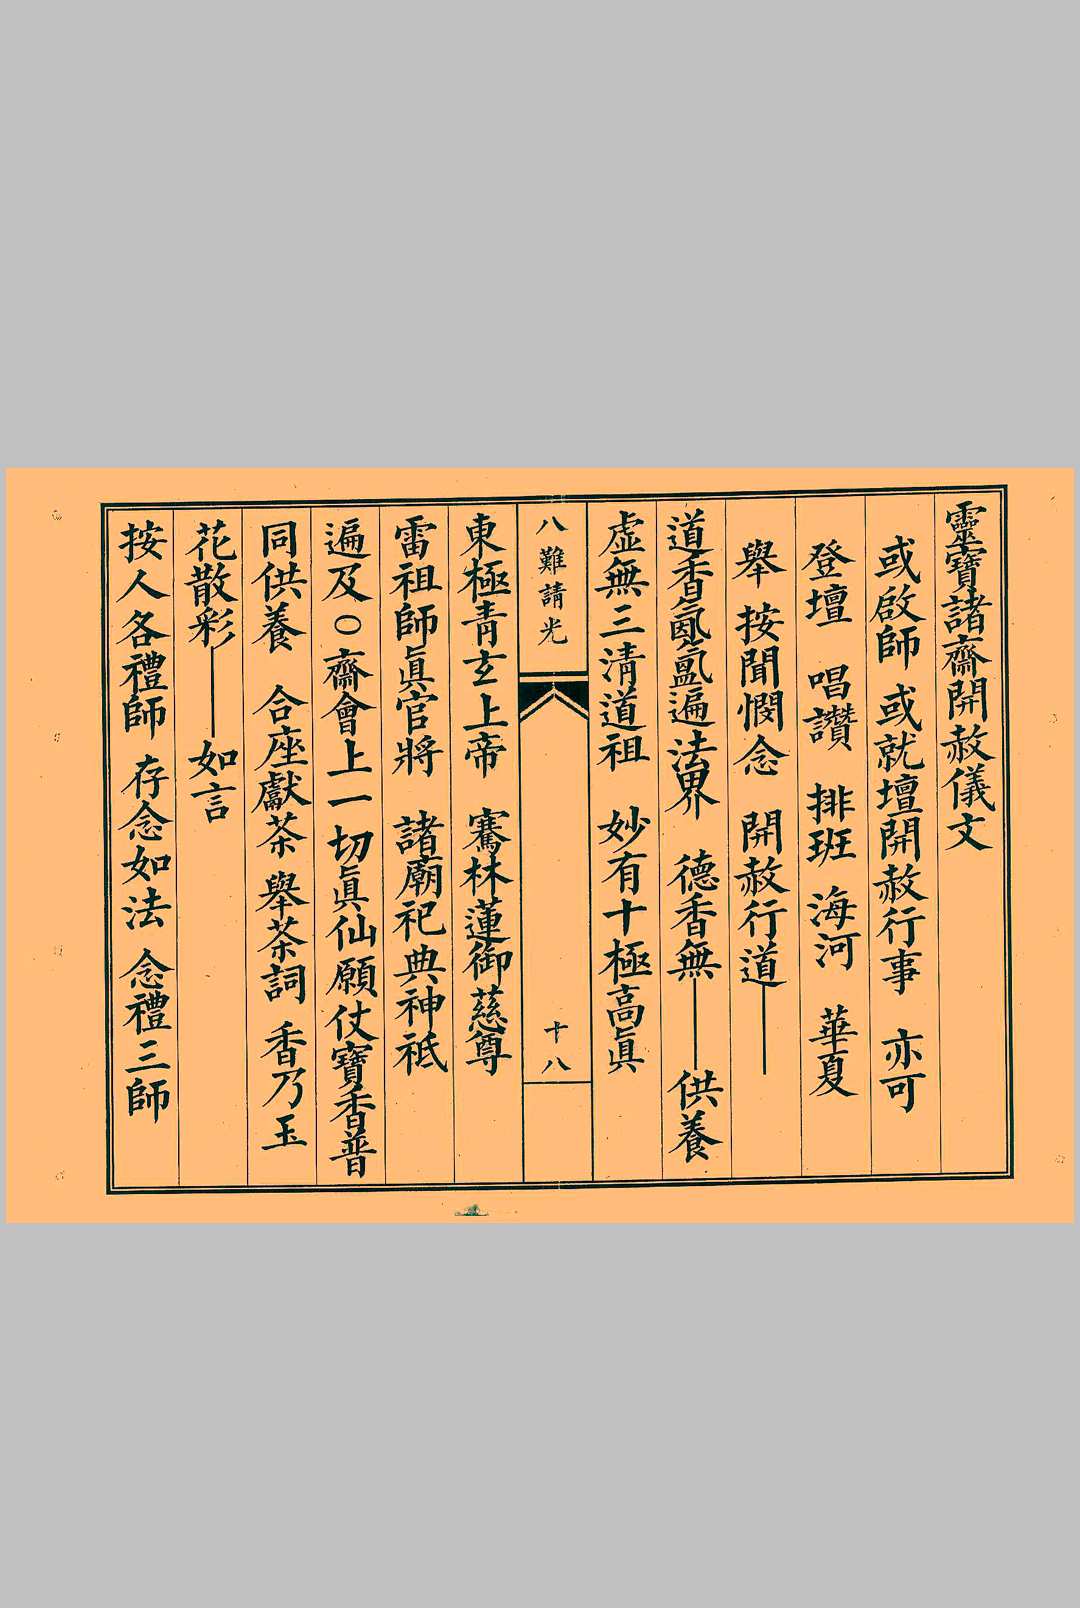 靈寶諸齋開赦儀文
或啟師 或就壇開赦行事 亦可
登壇 唱讚 排班 海河 華夏
舉 按聞憫念 開赦行道——
道香氤氳遍法界 德香無——供養
虛無三清道祖 妙有十極高眞
八難請光 十八
東極青玄上帝 騫林蓮御慈尊
雷祖師眞官將 諸廟祀典神祇
遍及〇齋會上一切眞仙願仗寶香普
同供養 合座獻茶 舉茶詞 香乃玉
花散彩——如言
按人各禮師 存念如法 念禮三師